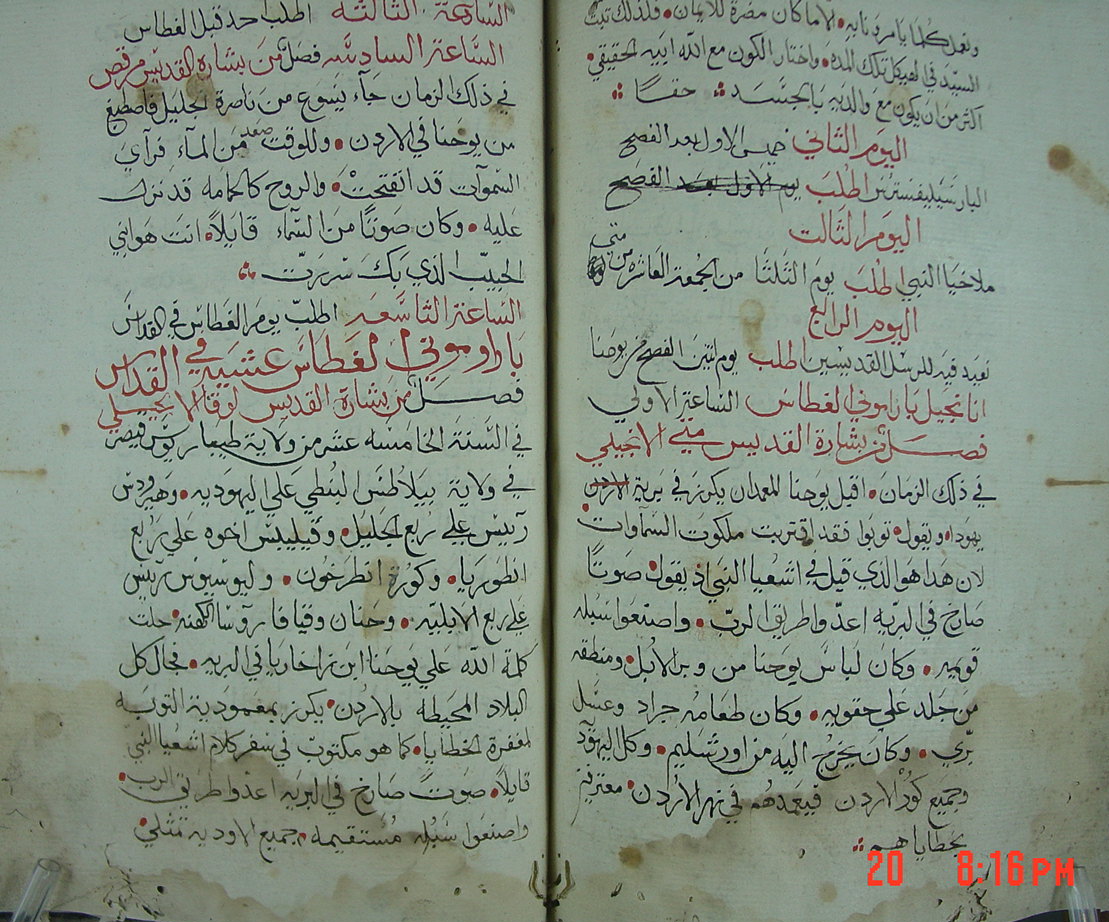 ونعمل كلما يامروننا به • لا ما كان مضرة للايمان • فلذلك تبت
السيد في الهيكل تلك المده • واختار الكون مع الله ابيه الحقيقي •
اكثر من ان يكون مع والديه بالجسد • حقاً
اليوم الثاني خميس الاول بعد الفصح
البار سيليفستروس اطلب يوم الاول بعد الفصح
اليوم الثالت
ملاخيا النبي اطلب يوم الثلثا من الجمعة العاشره من
اليوم الرابع
نعيد فيه للرسل القديسين اطلب يوم اثنين الفصح يوحنا
اناجيل باراموني الغطاس الساعة الاولي
فصل من بشارة القديس متي الانجيلي
في ذلك الزمان • اقبل يوحنا المعمدان يكرز في برية الاردن
يهودا • ويقول • توبوا فقد اقتربت ملكوت السماوات •
لان هدا هو الذي قيل في اشعيا النبي اذ يقول • صوتاً
صارخ في البريه اعدوا طريق الرب • واصنعوا سبله
قويمه • وكان لباس يوحنا من وبر الابل • ومنطقه
من جلد علي حقويه • وكان طعامه جراد وعسل
بري • وكان يخرج اليه من اورشليم • وكل اليهوديه
وجميع كور الاردن فيعمدهم في نهر الاردن • معترفين
بخطاياهم
الساعة الثالثه اطلب احد قبل الغطاس
الساعة السادسه فصل من بشارة القديس مرقص
في ذلك الزمان جآء يسوع من ناصرة الجليل فاصطبغ
من يوحنا في الاردن • وللوقت صعد من المآء فرآي
السموات قد انفتحت • والروح كالحمامه قد نزل
عليه • وكان صوتاً من السماء قايلاً • انت هو ابني
الحبيب الذي بك سررت
الساعة التاسعه اطلب يوم الغطاس في القداس
باراموني الغطاس عشية في القداس
فصل من بشارة القديس لوقا الانجيلي
في السنة الخامسه عشر من ولاية طيباريوس قيصر
في ولاية بيلاطس البنطي علي اليهوديه • وهيرودس
رئيس علي ربع الجليل • وفيليبس اخوه علي ربع
انطوريا • وكورة انطرخون • وليوسيوس رئيس
علي ربع الابليه • وحنان وقيافا روسا الكهنه • حلت
كلمة الله علي يوحنا ابن زاخاريا في البريه • فجال كل
البلاد المحيطه بالاردن • يكرز بمعمودية التوبه
لمغفرة الخطايا • كما هو مكتوب في سفر كلام اشعيا النبي
قايلاً • صوت صارخ في البريه اعدوا طريق الرب •
واصنعوا سبله مستقيمه • جميع الاوديه تمتلئ •
20 8:16PM